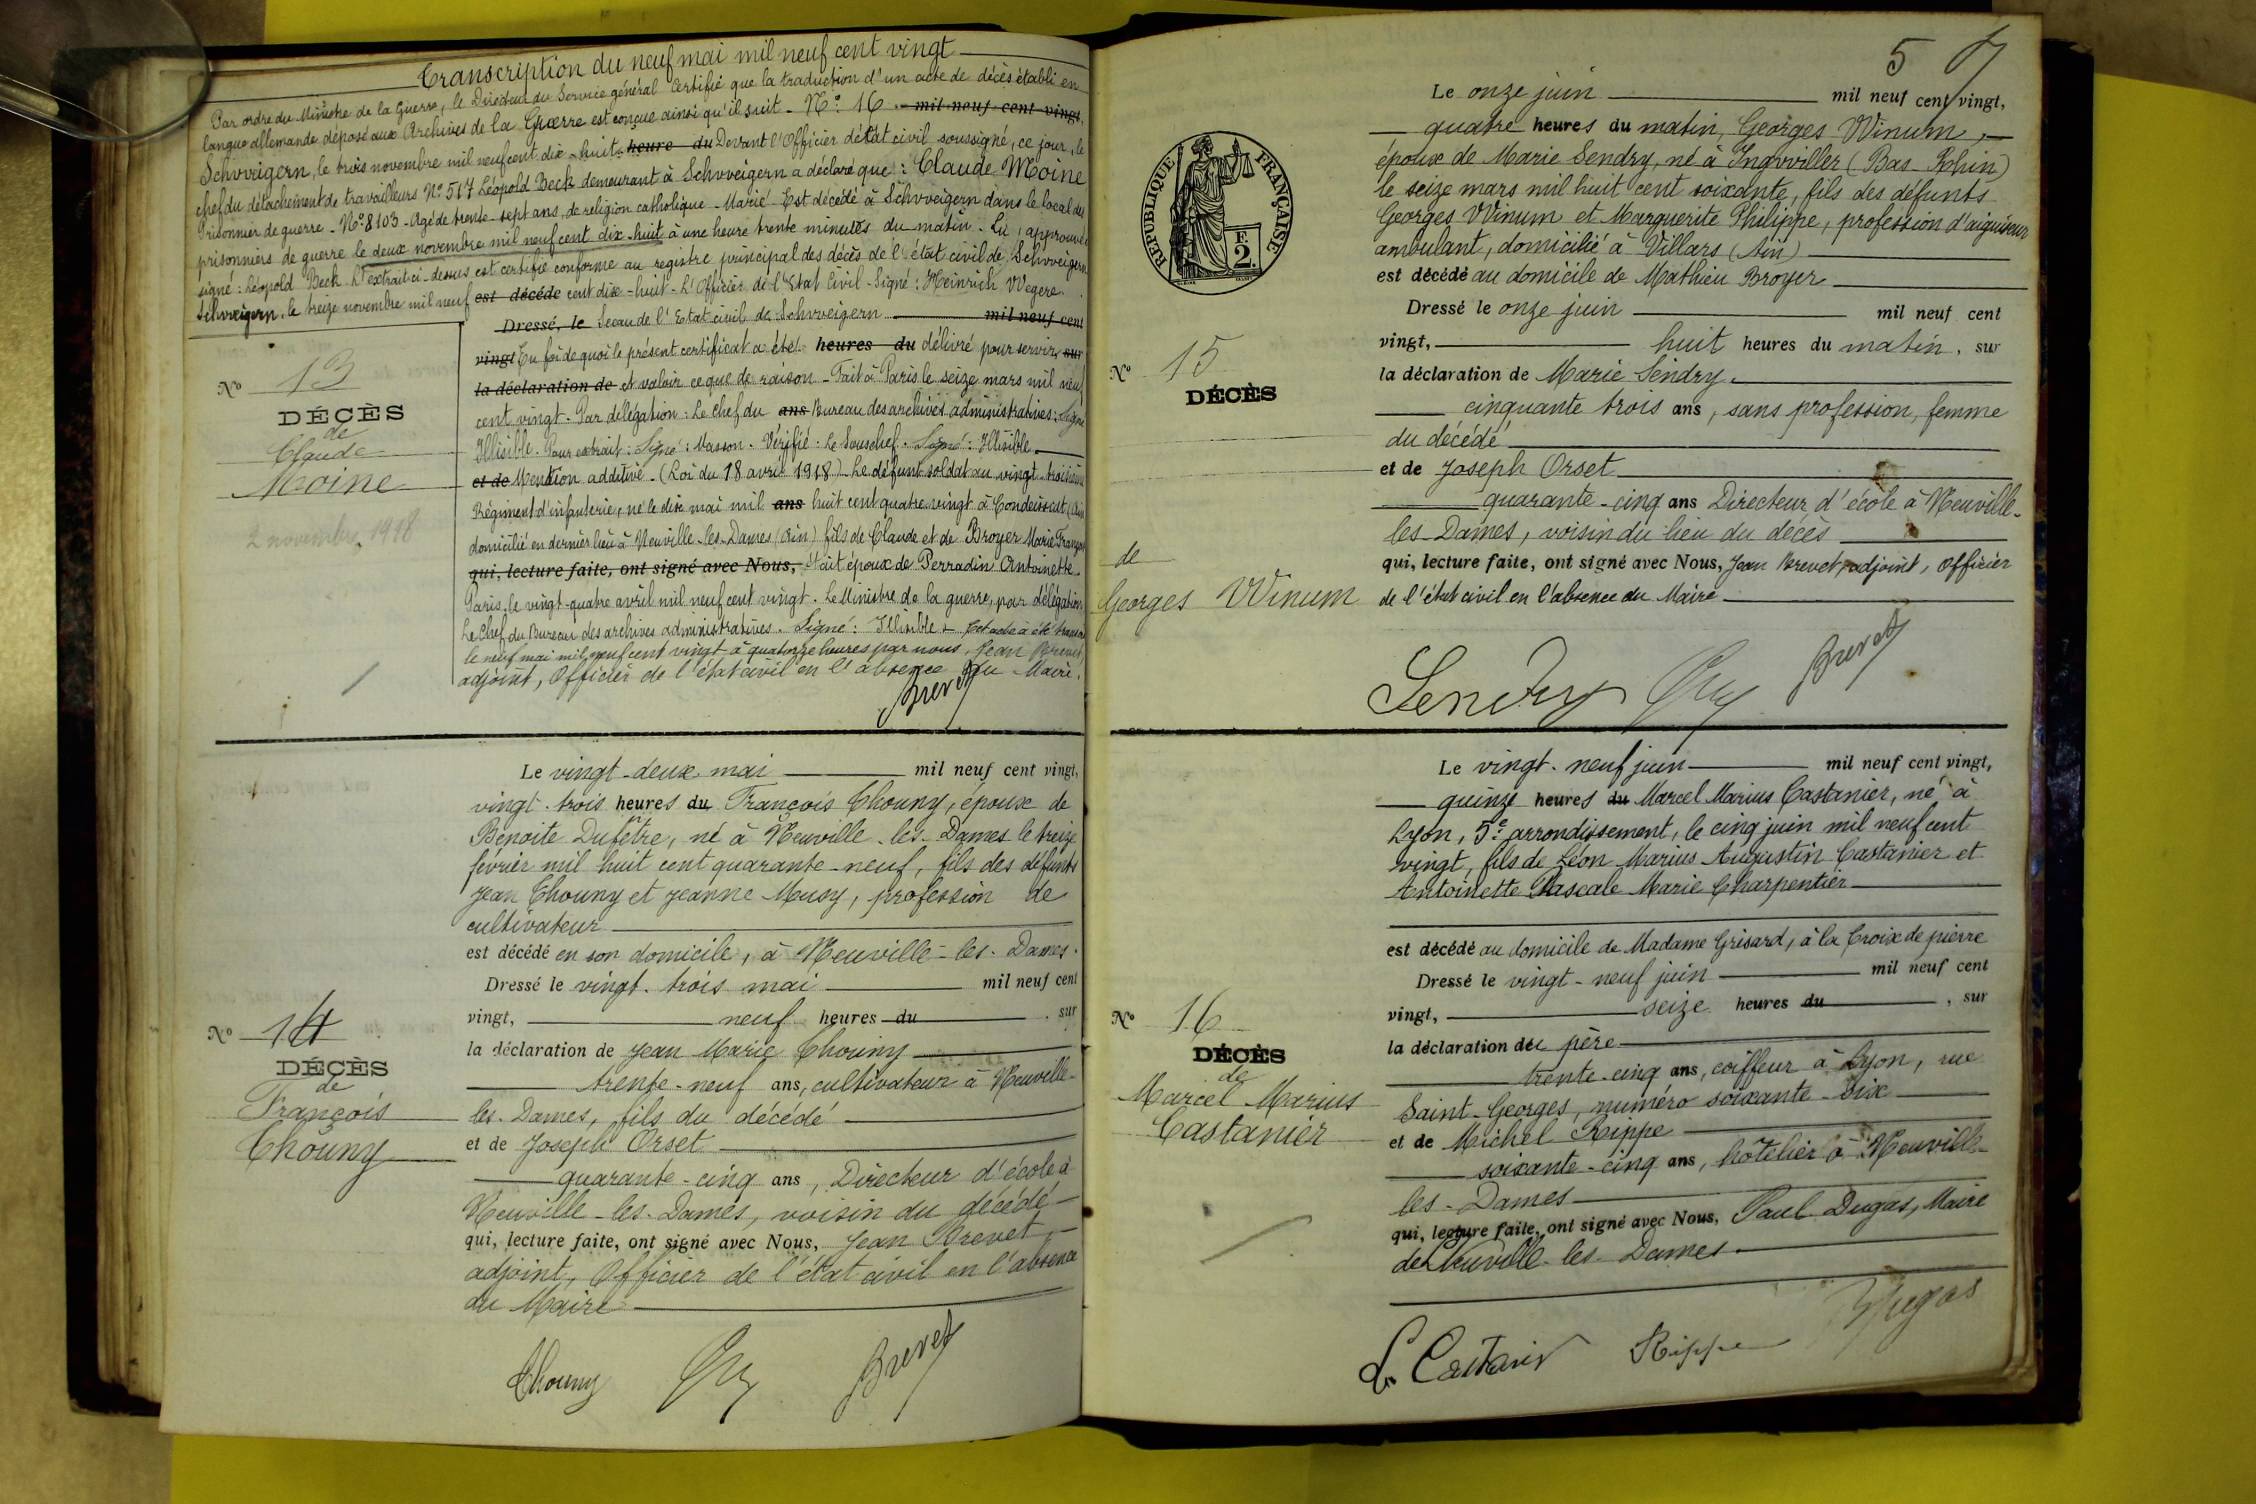 Transcription du neuf mai mil neuf cent vingt
Par ordre du Ministre de la Guerre, le Directeur du Service général Certifie que la traduction d'un acte de décès établi en
langue allemande déposé aux Archives de la Guerre est conçue ainsi qu'il suit - N° 16 - mil neuf cent vingt,
Schvveigern, le trois novembre mil neuf cent dix-huit heure du Devant l'Officier d'état civil soussigné, ce jour, le
chef du détachement de travailleurs N° 517 Léopold Beck demeurant à Schvveigern a déclaré que : Claude Moine
Prisonnier de guerre - N° 8103 - Agé de trente-sept ans, de religion catholique - Marié - Est décédé à Schvveigern dans le local des
prisonniers de guerre le deux novembre mil neuf cent dix-huit à une heure trente minutes du matin. Lu, approuvé
signé : Léopold Beck. L'extrait ci-dessus est certifié conforme au registre principal des décès de l'état civil de Schvveigern
Schvveigern, le treize novembre mil neuf est décédé cent dix-huit - L'Officier de l'Etat Civil - Signé : Heinrich VVegere.
Dressé, le Sceau de l'Etat civil de Schvveigern mil neuf cent
vingt En foi de quoi le présent certificat a été heures du délivré pour servir sur
la déclaration de et valoir ce que de raison - Fait à Paris le seize mars mil neuf
cent vingt. Par délégation : Le chef du ans Bureau des archives administratives : Signé
Illisible. Pour extrait : Signé : Masson. Vérifié : Le Souschef. Signé : Illisible.
et de Mention additive - (Loi du 18 avril 1918) - Le défunt soldat au vingt-troisième
Régiment d'infanterie, né le dix mai mil ans huit cent quatre vingt à Condeissiat (Ain
domicilié en dernier lieu à Neuville-les-Dames (Ain) fils de Claude et de Broyer Marie Françoise
qui, lecture faite, ont signé avec Nous, était époux de Perradin Antoinette
Paris, le vingt-quatre avril mil neuf cent vingt. Le Ministre de la guerre, par délégation
Le Chef du Bureau des archives administratives. Signé : Illisible - Cet acte a été transcrit
le neuf mai mil neuf cent vingt à quatorze heures par nous, Jean Brevet,
adjoint, Officier de l'état civil en l'absence du Maire.
Brevet
N° 13
DÉCÈS
de
Claude
Moine
2 novembre 1918
Le vingt-deux mai mil neuf cent vingt,
vingt-trois heures du François Chouny, époux de
Benoite Dufêtre, né à Neuville-les-Dames le treize
février mil huit cent quarante-neuf, fils des défunts
Jean Chouny et Jeanne Musy, profession de
cultivateur
est décédé en son domicile, à Neuville-les-Dames.
Dressé le vingt-trois mai mil neuf cent
vingt, neuf heures du , sur
la déclaration de Jean Marie Chouny
trente-neuf ans, cultivateur à Neuville-
les-Dames, fils du décédé
et de Joseph Orset
quarante-cinq ans, Directeur d'école à
Neuville-les-Dames, voisin du décédé
qui, lecture faite, ont signé avec Nous, Jean Brevet
adjoint, Officier de l'état civil en l'absence
du Maire
Chouny Brevet
N° 14
DÉCÈS
de
François
Chouny
5
RÉPUBLIQUE FRANÇAISE
E
2.
Le onze juin mil neuf cent vingt,
quatre heures du matin, Georges VVinum,
époux de Marie Sendry, né à Ingvviller (Bas-Rhin)
le seize mars mil huit cent soixante, fils des défunts
Georges VVinum et Marguerite Philippe, profession d'aiguiseur
ambulant, domicilié à Villars (Ain)
est décédé au domicile de Mathieu Broyer
Dressé le onze juin mil neuf cent
vingt, huit heures du matin, sur
la déclaration de Marie Sendry
cinquante trois ans, sans profession, femme
du décédé
et de Joseph Orset
quarante-cinq ans Directeur d'école à Neuville-
les-Dames, voisin du lieu du décès
qui, lecture faite, ont signé avec Nous, Jean Brevet, adjoint, Officier
de l'état civil en l'absence du Maire
Sendry Brevet
N° 15
DÉCÈS
de
Georges VVinum
Le vingt-neuf juin mil neuf cent vingt,
quinze heures du Marcel Marius Castanier, né à
Lyon, 5e arrondissement, le cinq juin mil neuf cent
vingt, fils de Léon Marius Augustin Castanier et
Antoinette Pascale Marie Charpentier
est décédé au domicile de Madame Grisard, à la Croix de pierre
Dressé le vingt-neuf juin mil neuf cent
vingt, seize heures du , sur
la déclaration du père
trente-cinq ans, coiffeur à Lyon, rue
Saint-Georges, numéro soixante-dix
et de Michel Rippe
soixante-cinq ans, hôtelier à Neuville-
les-Dames
qui, lecture faite, ont signé avec Nous, Paul Dugas, Maire
de Neuville-les-Dames
L. Castanier Rippe Dugas
N° 16
DÉCÈS
de
Marcel Marius
Castanier